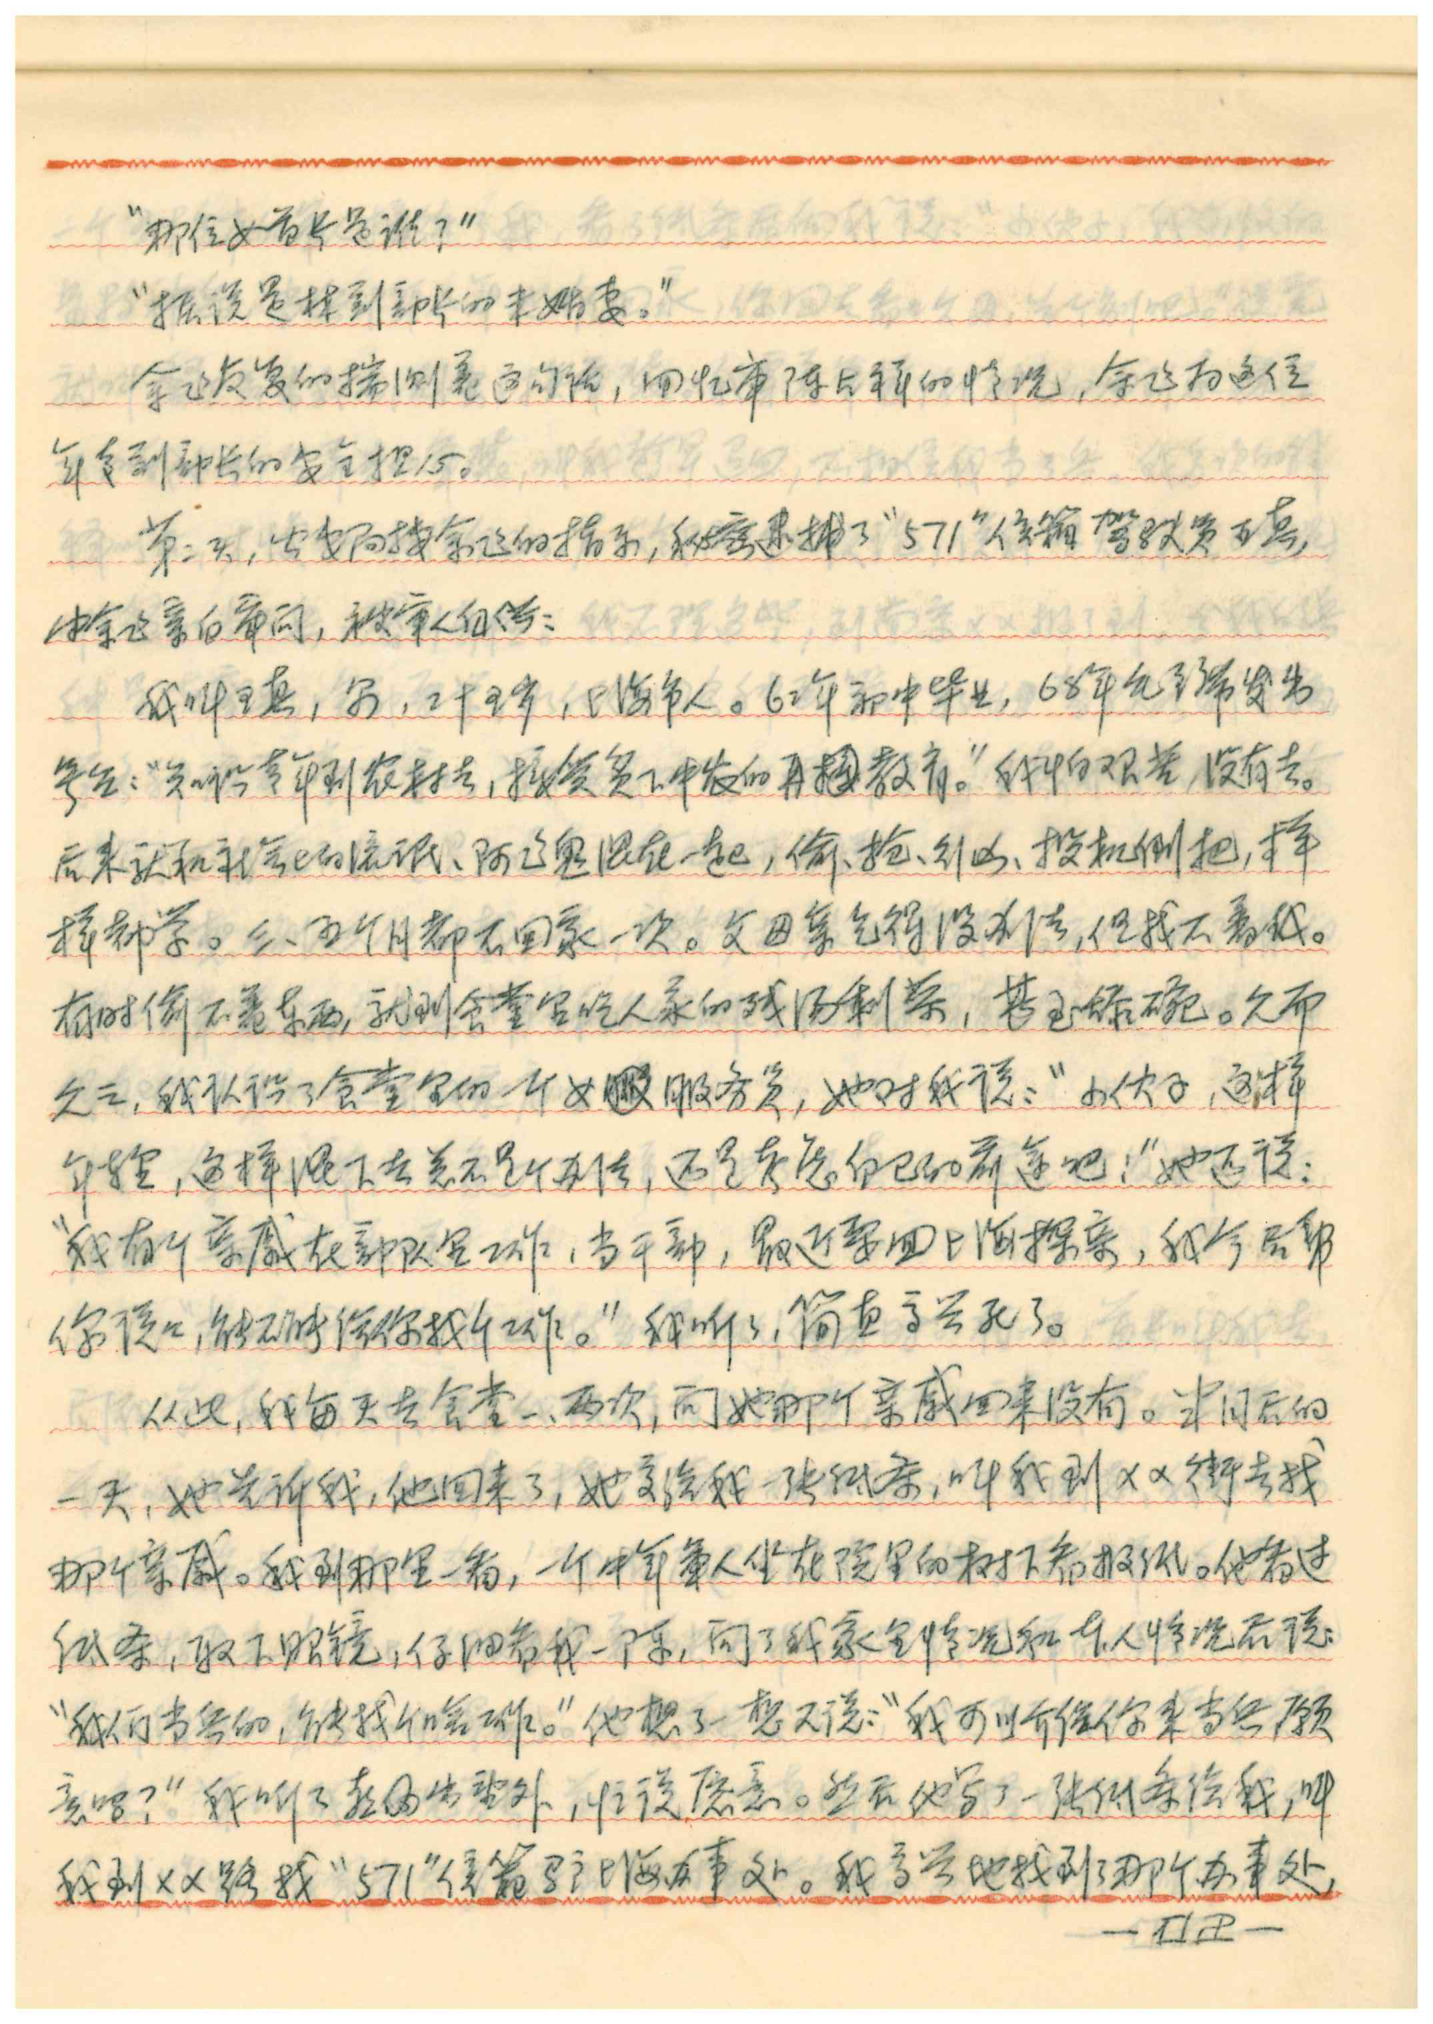 “那位女首长是谁？”
“据说是林副部长的未婚妻。”
余飞反复的揣测着这句话，回忆审陈占祥的情况，余飞为这位
年青副部长的安全担心。
第二天，公安局按余飞的指示，秘密逮捕了“571”信箱驾驶员王真，
由余飞亲自审问，被审人自供：
我叫王真，男，二十五岁，上海市人。62年初中毕业，68年毛主席发出
号召：“知识青年到农村去，接受贫下中农的再教育。”我怕艰苦，没有去。
后来就和社会上的流氓、阿飞鬼混在一起，偷、抢、行凶、投机倒把，样
样都学。三、五个月都不回家一次。父母亲气得没办法，但找不着我。
有时偷不着东西，就到食堂里吃人家的残汤剩菜，甚至舔碗。久而
久之，我认识了食堂里的一个女服务员，她对我说：“小伙子，这样
年轻，这样混下去总不是个办法，还是考虑自己的前途吧！”她还说：
“我有个亲戚在部队里工作，当干部，最近要回上海探亲，我今后帮
你说说，能不能给你找个工作。”我听了，简直高兴死了。
从此，我每天去食堂一、两次，问她那个亲戚回来没有。半月后的
一天，她告诉我，他回来了，她交给我一张纸条，叫我到××街去找
那个亲戚。我到那里一看，一个中年军人坐在院里的树下看报纸。他看过
纸条，取下眼镜，仔细看我一阵，问了我家里情况和本人情况后说：
“我们当兵的，能找个啥工作。”他想了一想又说：“我可以介绍你来当兵愿
意吗？”我听了喜出望外，忙说愿意。然后他写了一张纸条给我，叫
我到××路找“571”信箱驻上海办事处。我高兴地找到了那个办事处，